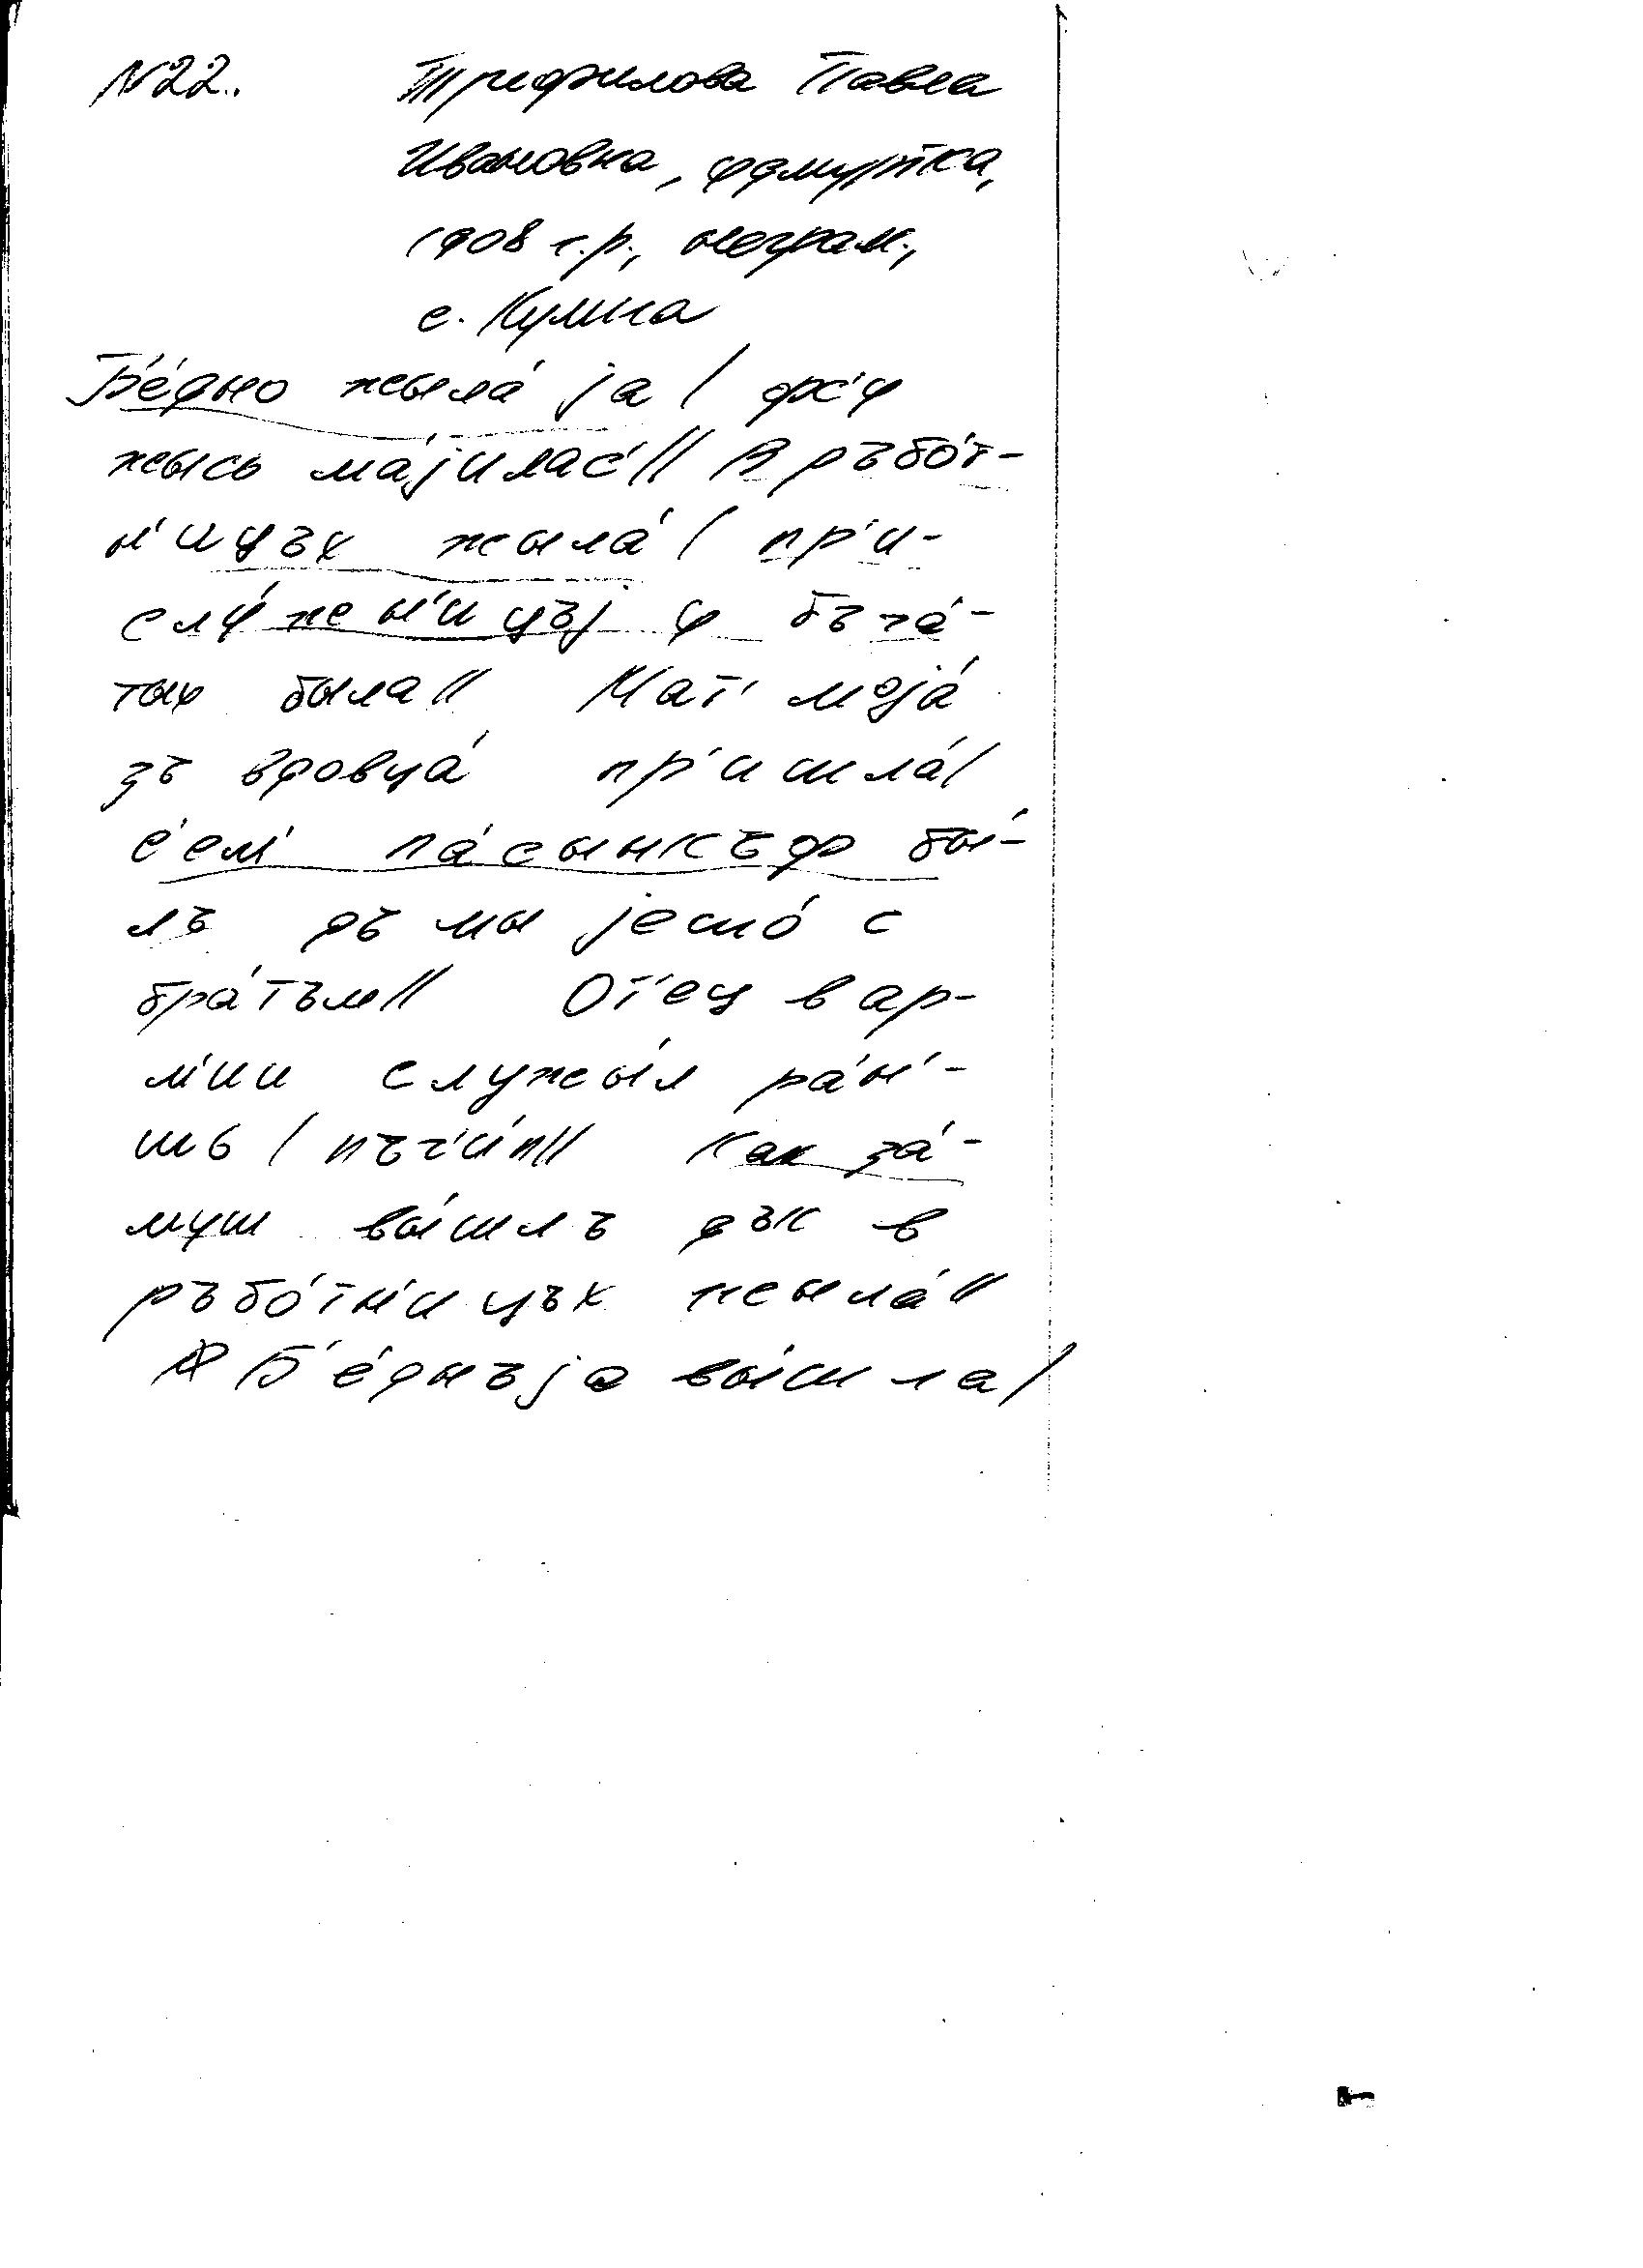 N22.. Трефилова Павла
Ивановна, удмуртка,
1908 г.р., неграм.,
с. Кулига
Б'е́дно жыла́ ја / фс'у
жысь ма́јилас'// В ръбо́т-
н'ицъх жыла́ / пр'и-
слу́жн'ицъј у бъга́-
тых была// Мат' моја́
зъ вдовца́ пр'ишла́/
с'ем' па́сынкъф бы́-
лъ дъ мы јешо́ с
бра́тъм// От'ец в ар-
м'ии служы́л ра́н'-
шъ / пъг'и́п// Как за́-
муш вы́шлъ дък в
ръбо́тн'ицъх жыла́//
Б'е́днъја вы́шла/